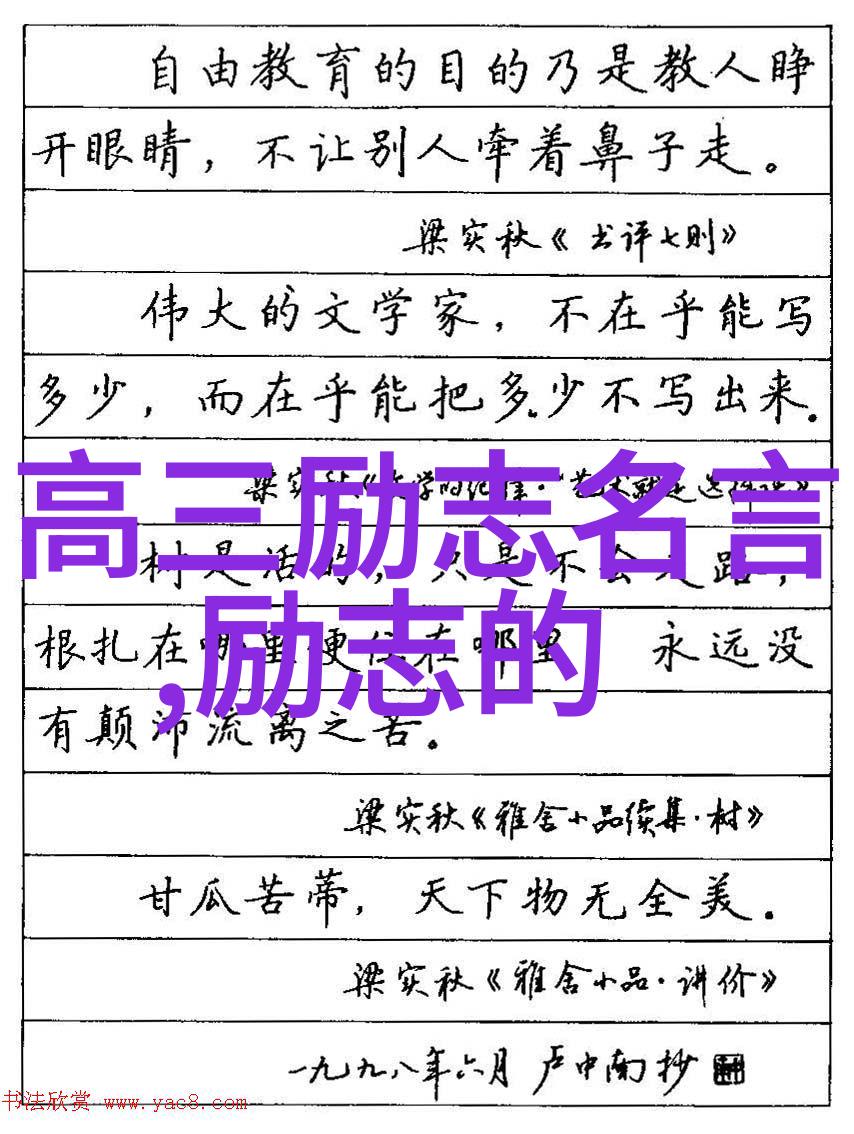 自由教育的目的乃是教人睁
开眼睛，不让别人牵着鼻子走。
梁实秋《书评七则》
伟大的文学家，不在乎能写
多少，而在乎能把多少不写出来。
高三励志名言
梁实秋《文学的纪律·
树是活的，只是不会走路，
根扎在哪里便住在哪里 永远没
,励志的
有颠沛流离之苦。
梁实秋《雅舍小品续集·树》
甘瓜苦蒂，天下物无全美。
梁实秋《雅舍小品·讲价》
一九九八年六月 卢中南抄
书法欣赏 www.yac8.com